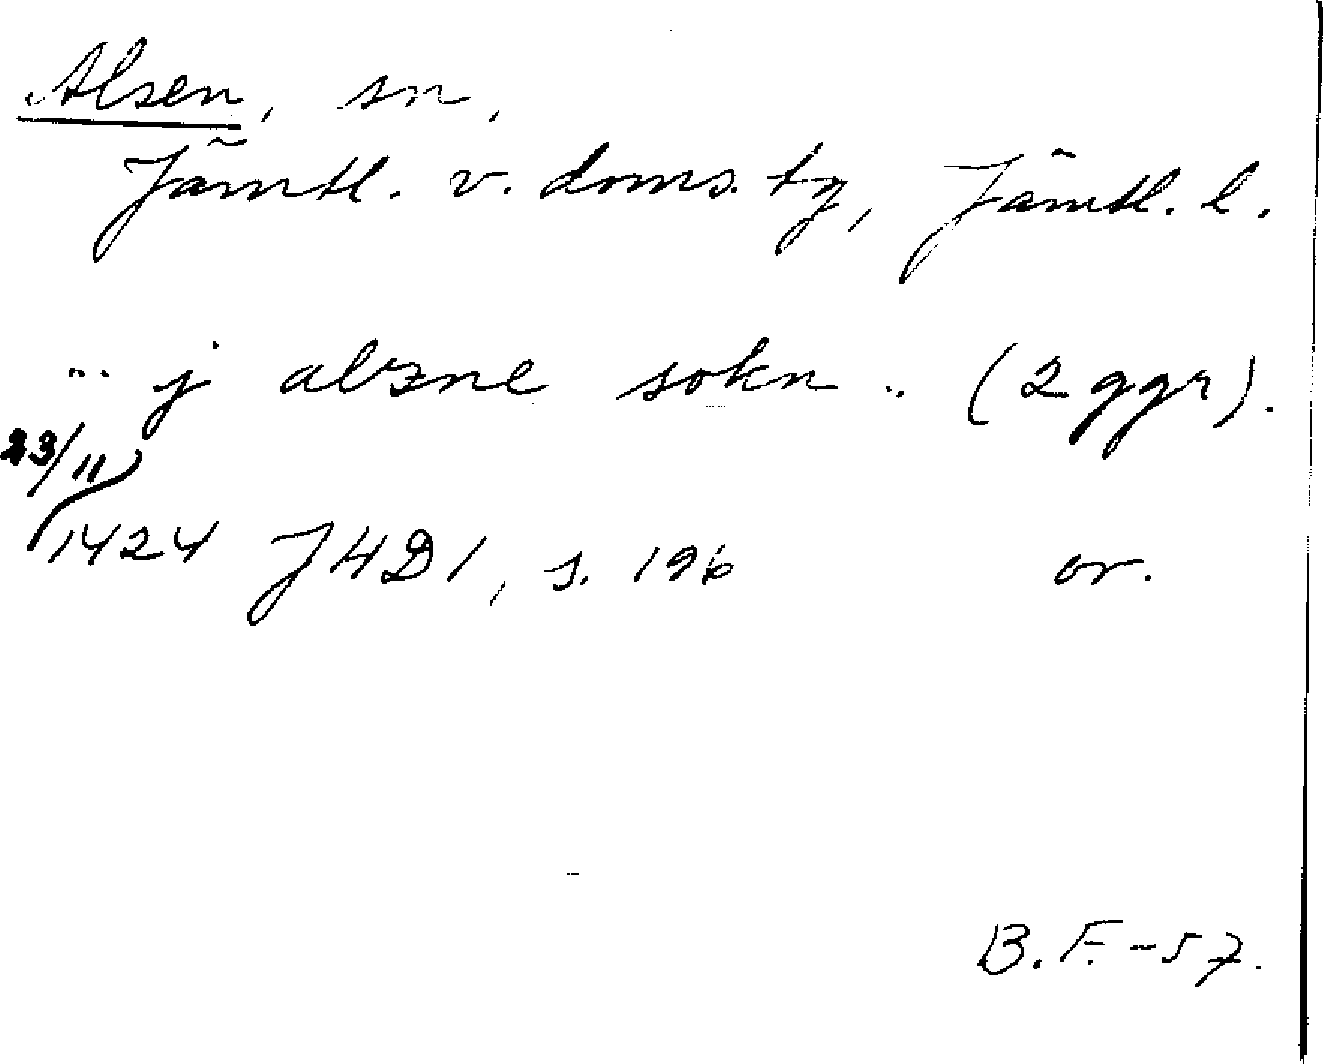 Alsen, sn,
Jämtl. v. doms. tg, Jämtl. l.
.. j alzne sokn .. (2 ggr).
23/11
1424 JHD1, s. 196 or.
B.F. -57.